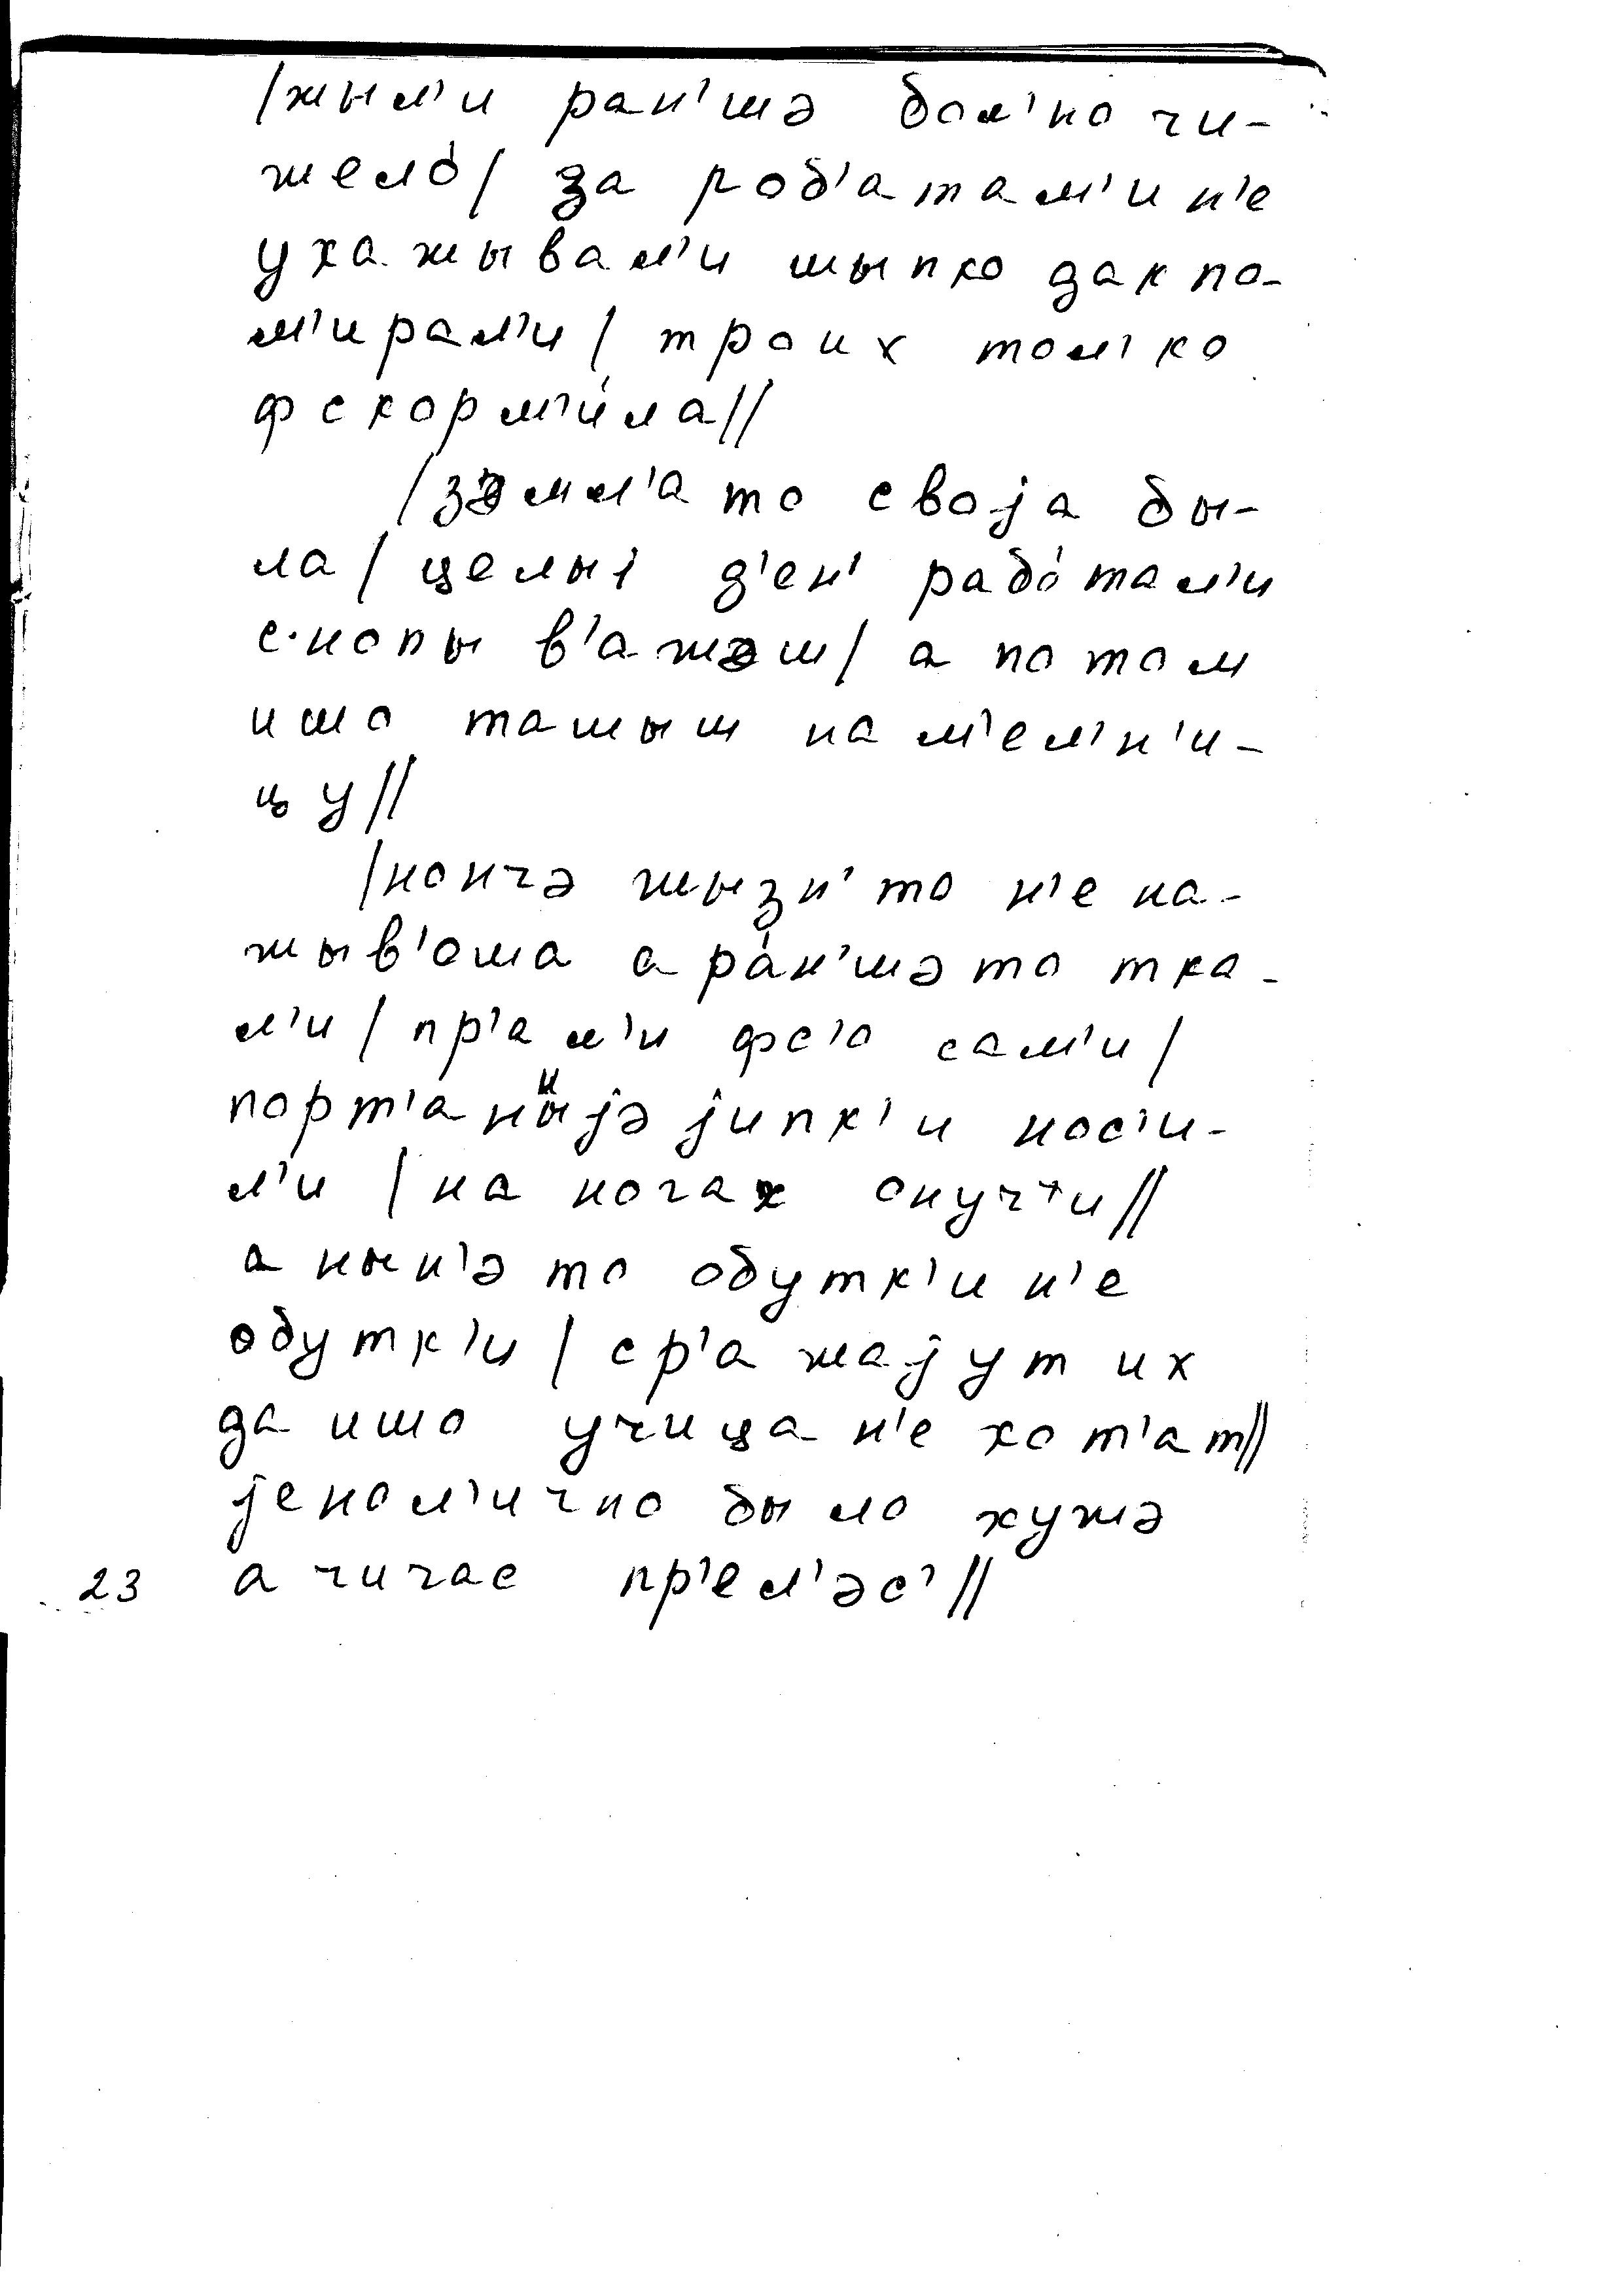 /жыл'и ран'шә бол'но чи-
жело́/ за роб'атам'и н'е
ухажывал'и шыпко дак по-
м'ирал'и/ троих тол'ко
фскорм'и́ла//
/зәмл'а то својa бы-
ла/ целыi д'ен' рабо́тал'и
снопы в'ажәш/ а потом
ишо ташыш на м'ел'н'и-
цу//
/нончә жызн' то н'е на-
жыв'оша а ра́н'шә то тка-
л'и/ пр'ал'и фс'о сам'и/
порт'аныjә jупк'и нос'и-
л'и/ на ногах онучт'и//
а нын'ә то обутк'и н'е
обутк'и/ ср'ажajут их
да ишо учица н'е хот'ат//
jенол'ично было хужә
23 а чичас пр'ел'әс'//